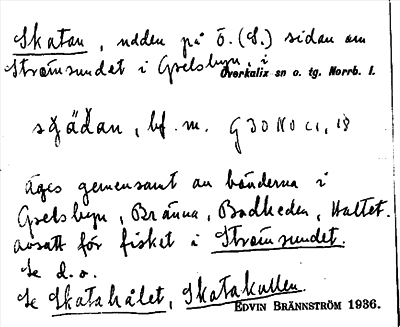 Skatan, udden på ö. (S.) sidan om
Strömsundet i Grelsbyn, i
Överkalix sn o. tg. Norrb. l.
bf. m. G 30 No c 1, 18
äges gemensamt av bönderna i
Grelsbyn, Bränna, Bodheden, Hattet.
avsatt för fisket i Strömsundet.
Se d. o.
Se Skatahålet, Skatakullen.
EDVIN BRÄNNSTRÖM 1936.